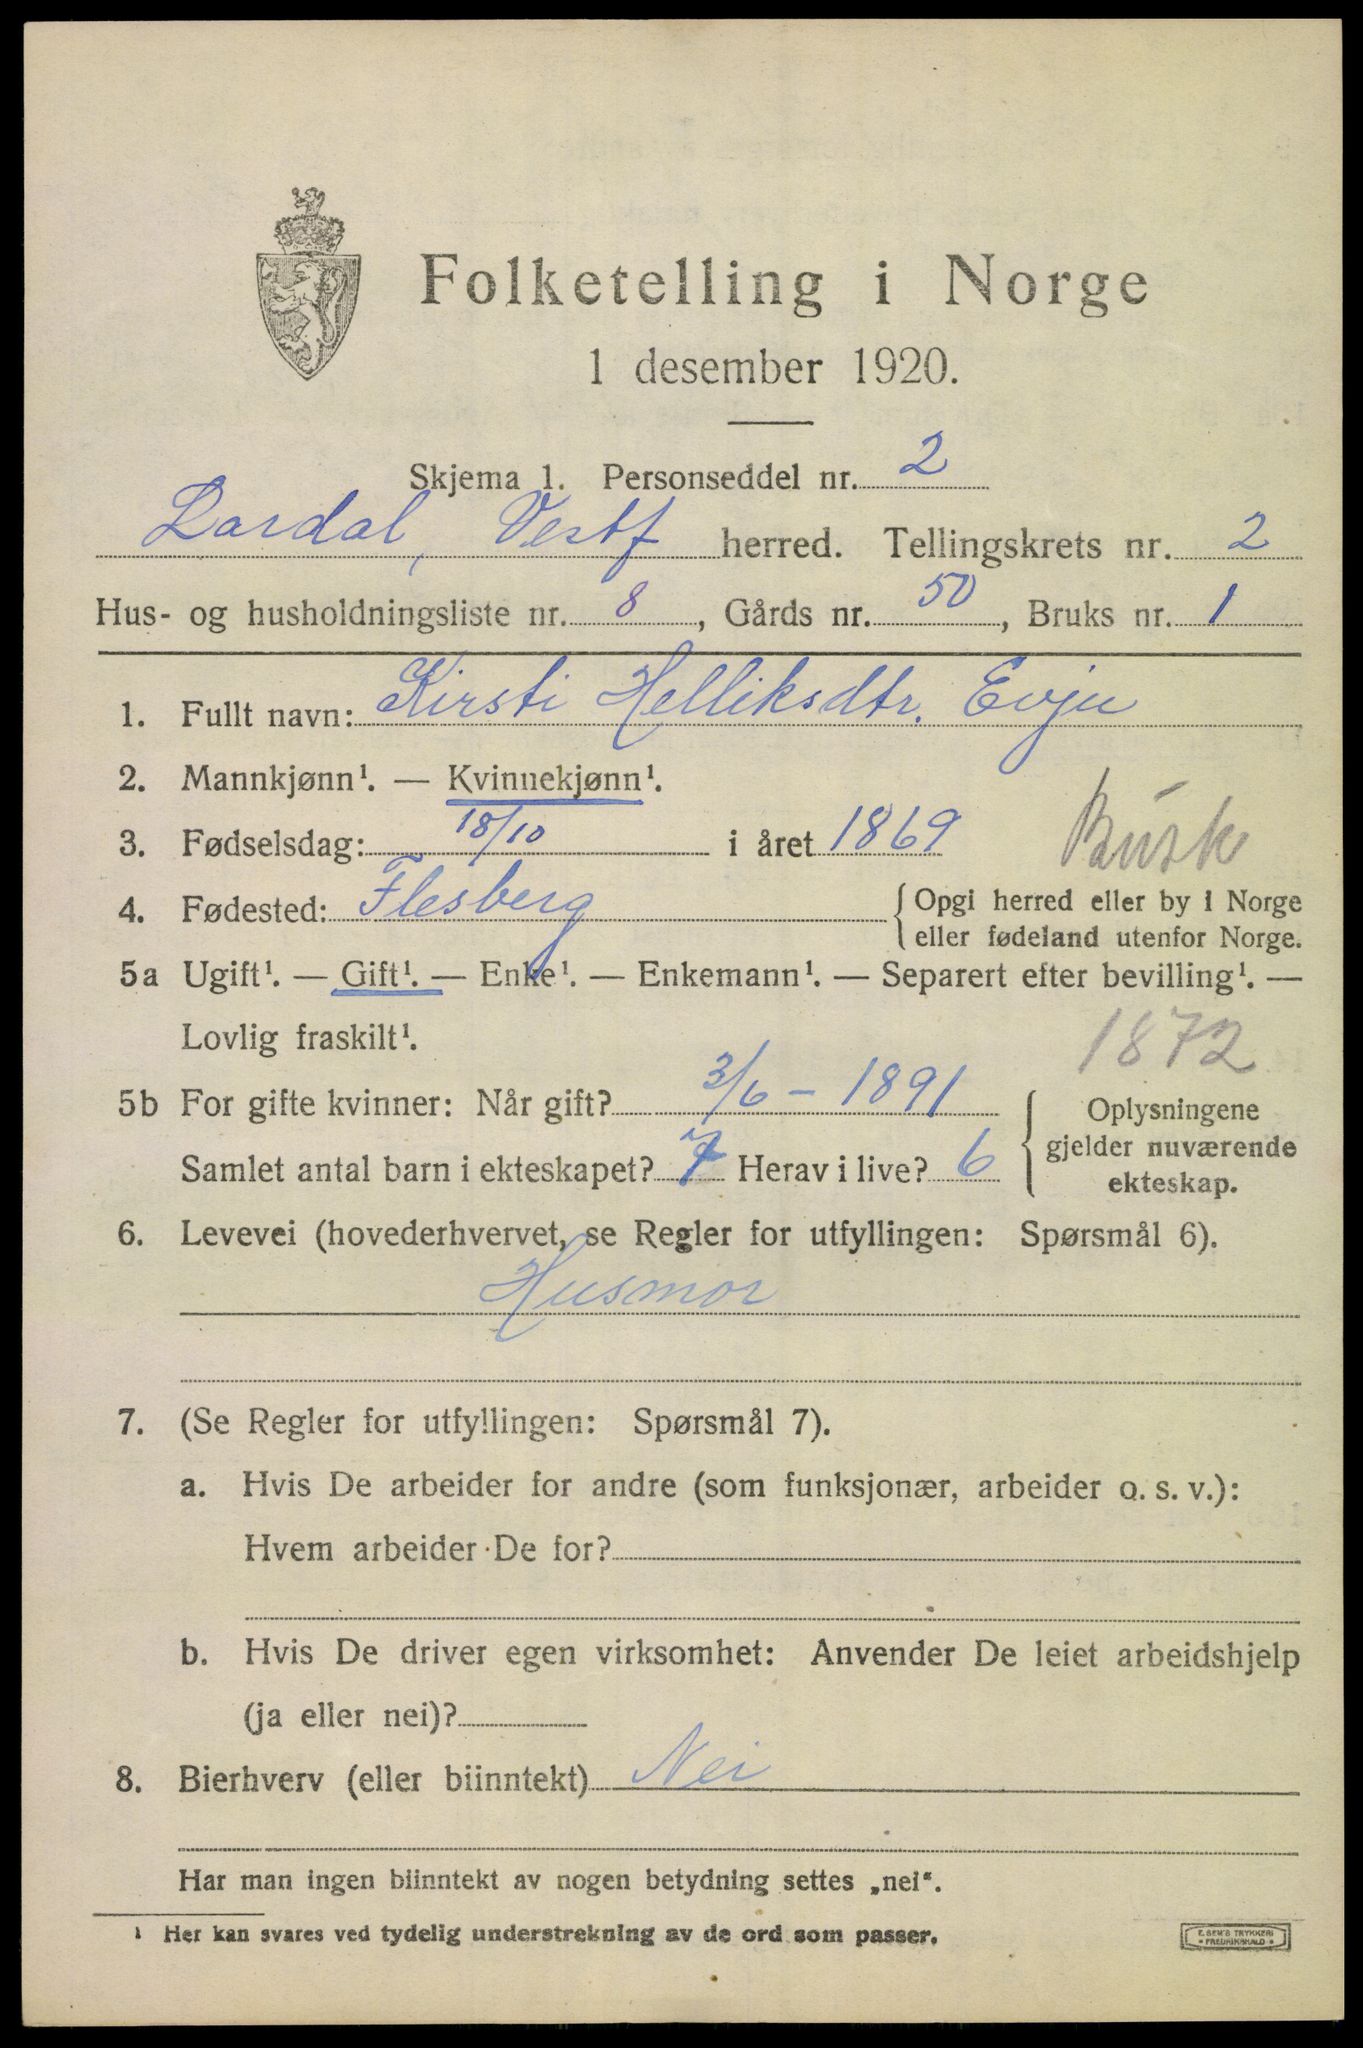 Folketelling i Norge
1 desember 1920.
Skjema 1. Personseddel nr. 2
Lardal, Vestf herred. Tellingskrets nr. 2
Hus- og husholdningsliste nr. 8, Gårds nr. 50, Bruks nr. 1
1. Fullt navn: Kirsti Helliksdtr. Evju
2. Mannkjønn¹. — Kvinnekjønn¹.
3. Fødselsdag: 18/10 i året 1869 Busk
4. Fødested: Flesberg { Opgi herred eller by i Norge
eller fødeland utenfor Norge.
5a Ugift¹. — Gift¹. — Enke¹. — Enkemann¹. — Separert efter bevilling¹. —
Lovlig fraskilt¹. 1872
5b For gifte kvinner: Når gift? 3/6 – 1891
Samlet antal barn i ekteskapet? 7 Herav i live? 6
{ Oplysningene
gjelder nuværende
ekteskap.
6. Levevei (hovederhvervet, se Regler for utfyllingen: Spørsmål 6).
Husmor
7. (Se Regler for utfyllingen: Spørsmål 7).
a. Hvis De arbeider for andre (som funksjonær, arbeider o. s. v.):
Hvem arbeider De for?
b. Hvis De driver egen virksomhet: Anvender De leiet arbeidshjelp
(ja eller nei)?
8. Bierhverv (eller biinntekt) Nei
Har man ingen biinntekt av nogen betydning settes „nei“.
¹ Her kan svares ved tydelig understrekning av de ord som passer.
E. SEM'S TRYKKERI
• FREDRIKSHALD •